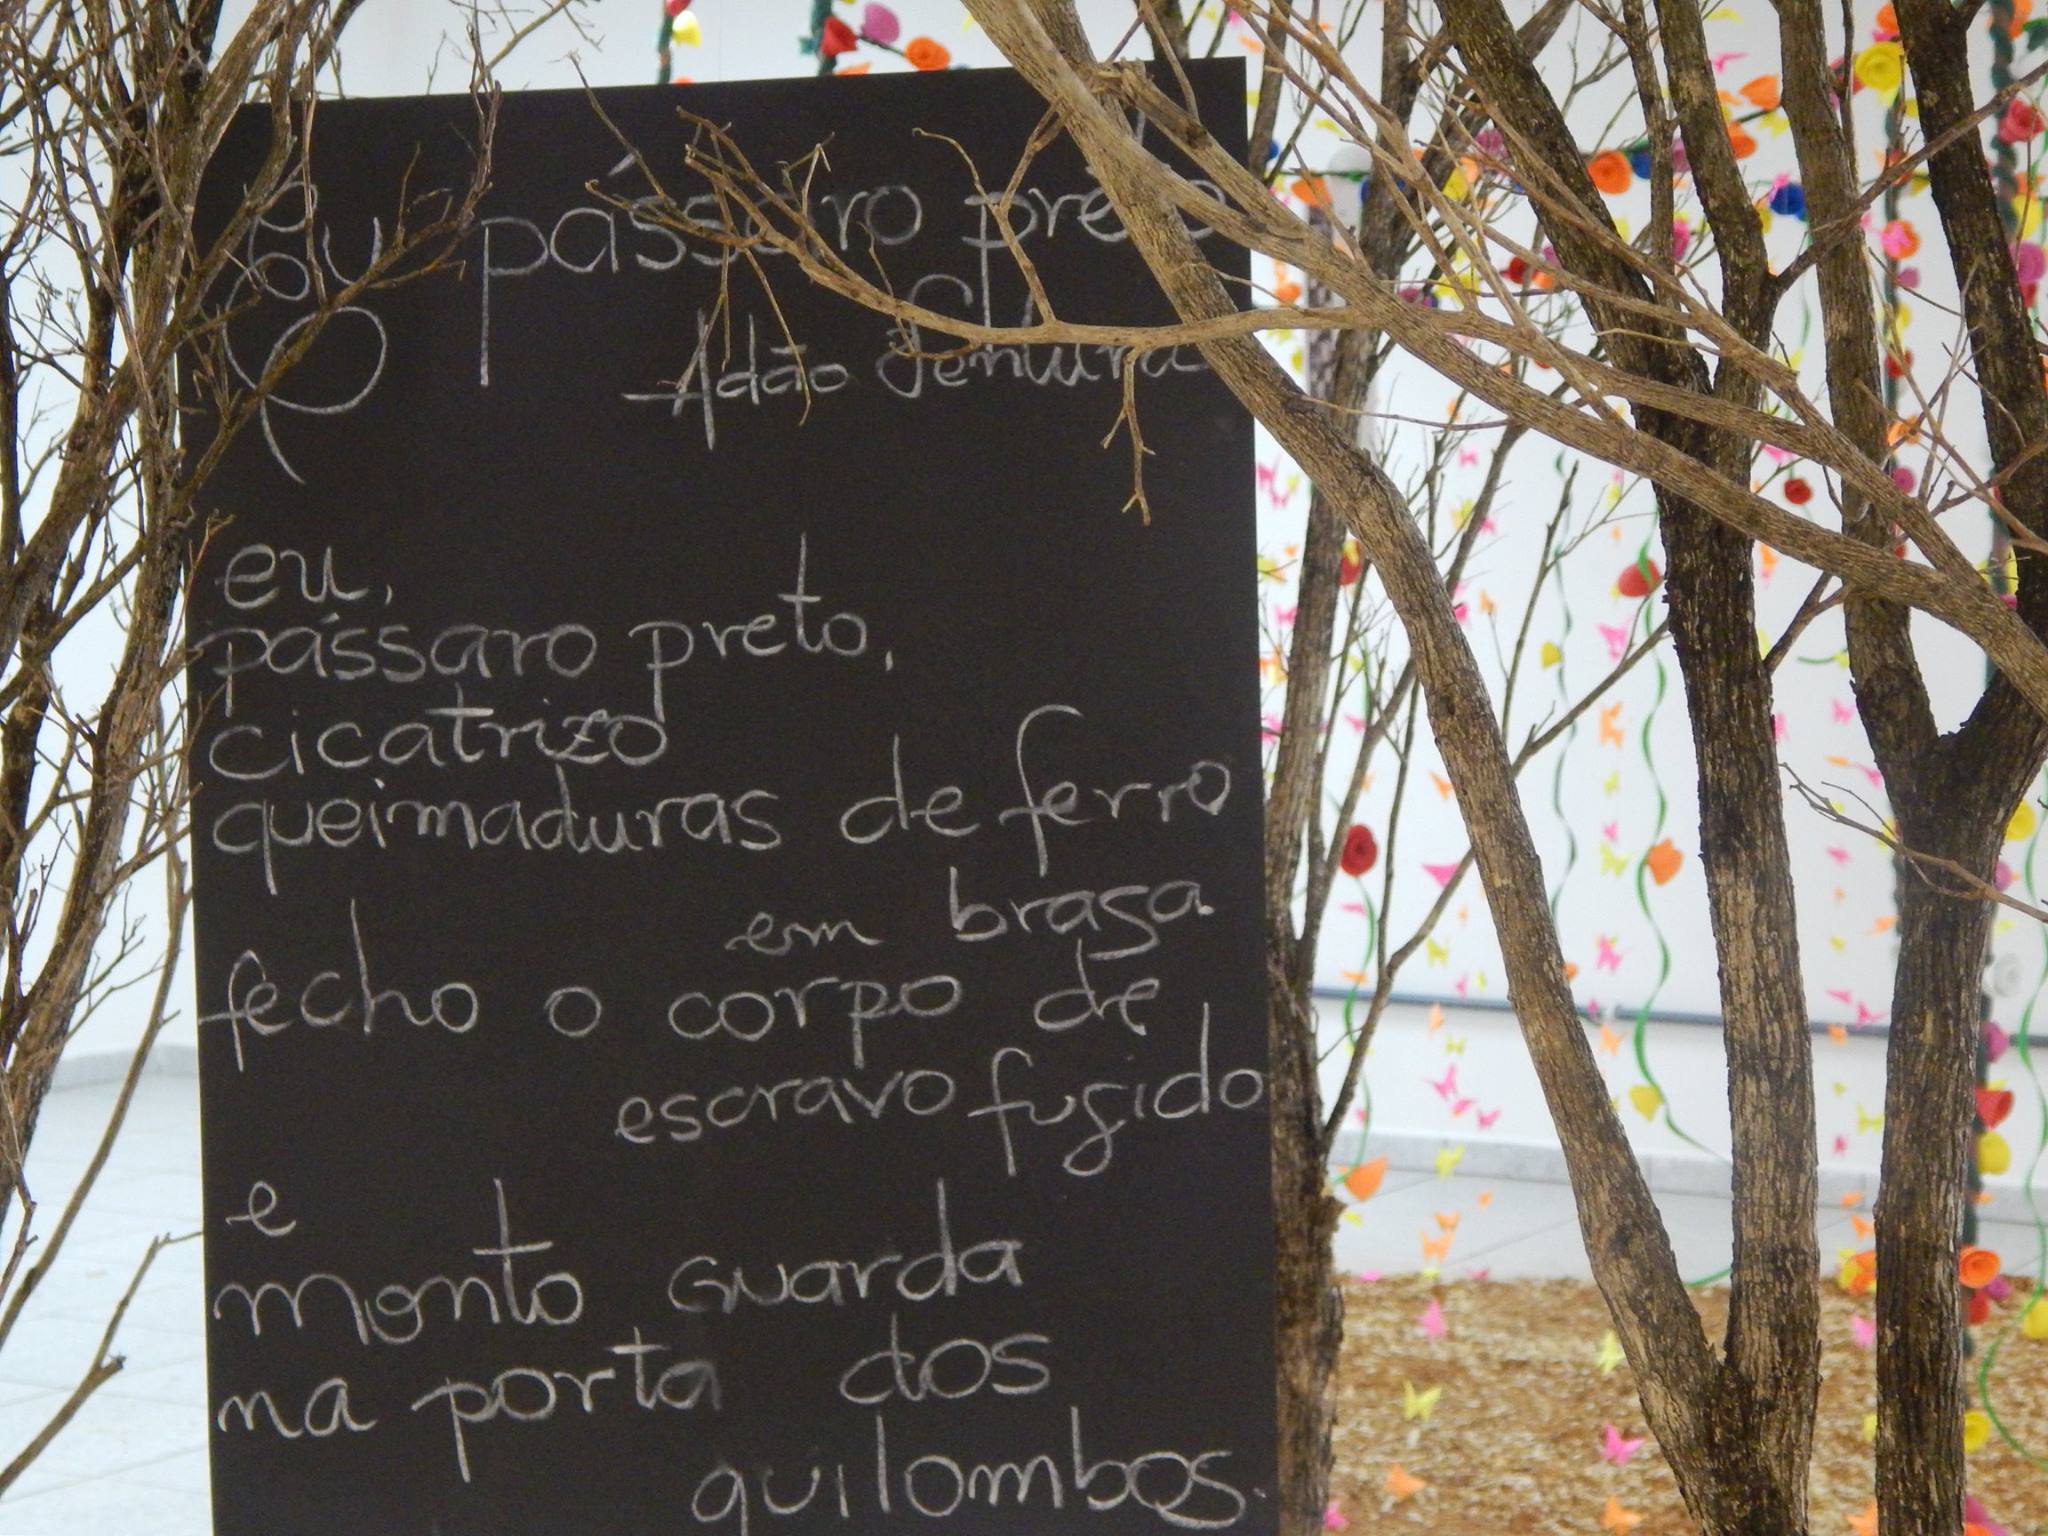 Eu pássaro preto
Adão Ventura
eu,
pássaro preto,
cicatrizo
queimaduras de ferro
em brasa.
fecho o corpo de
escravo fugido
e
monto guarda
na porta dos
quilombos.